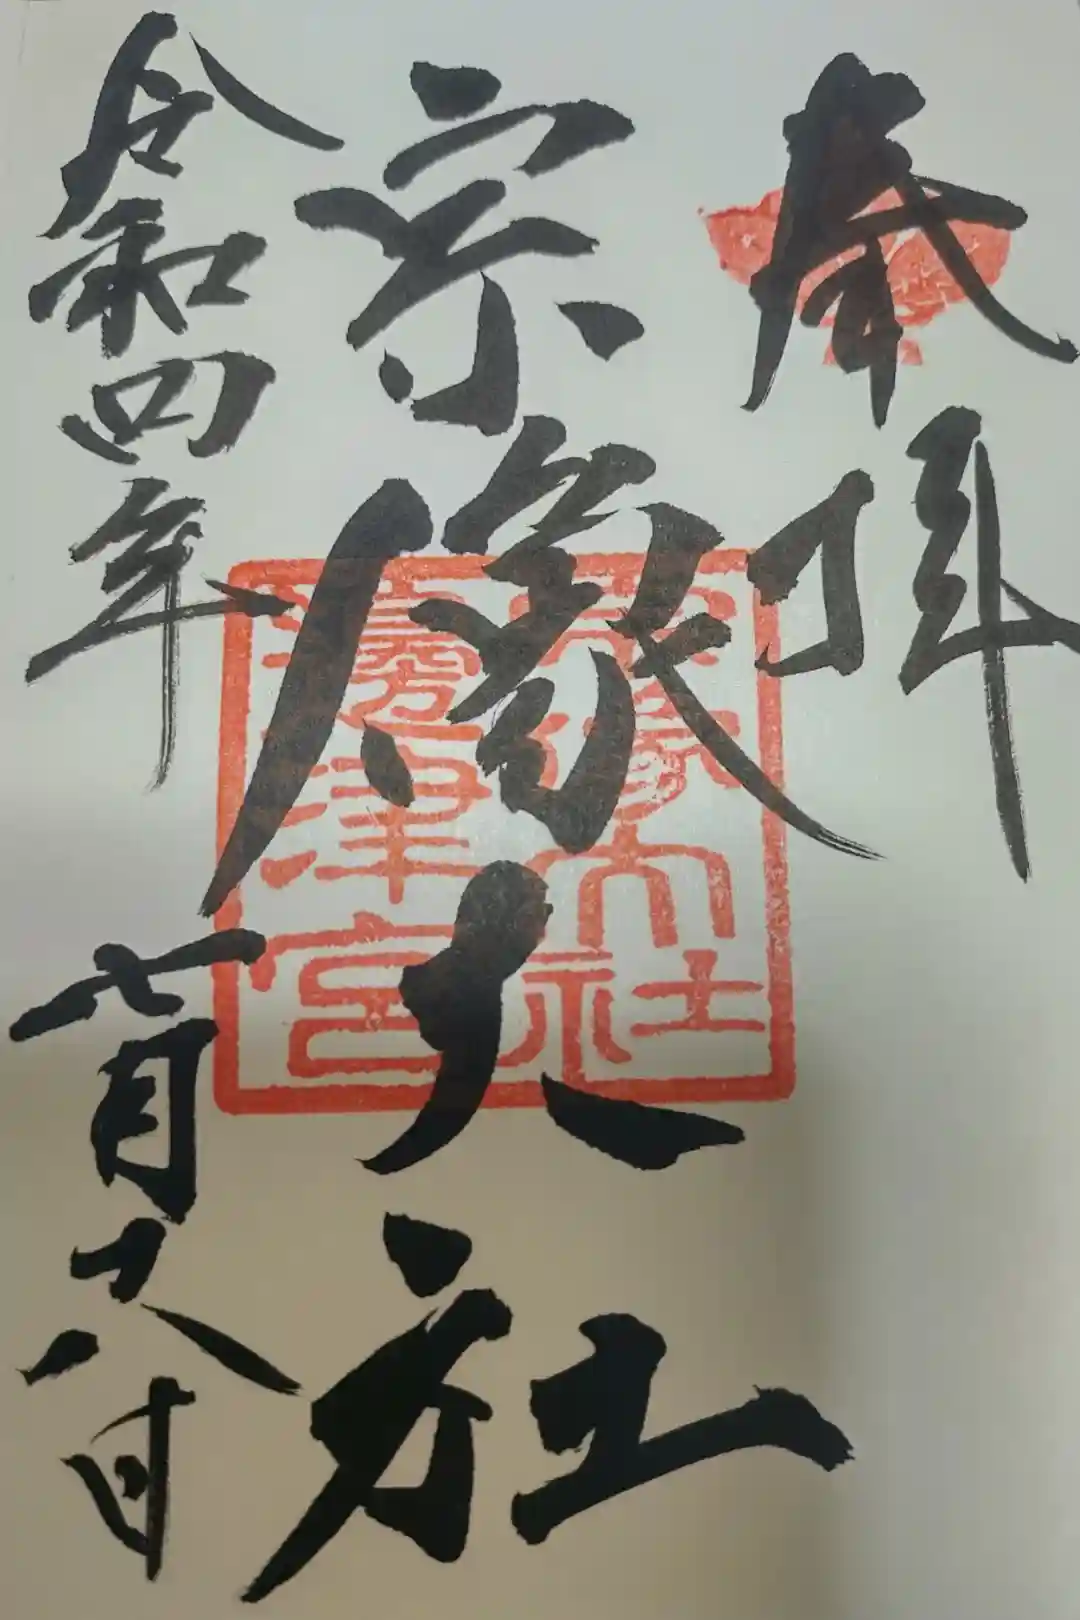 奉拝
宗像大社
宗像大社
邊津宮
令和四年七月八日